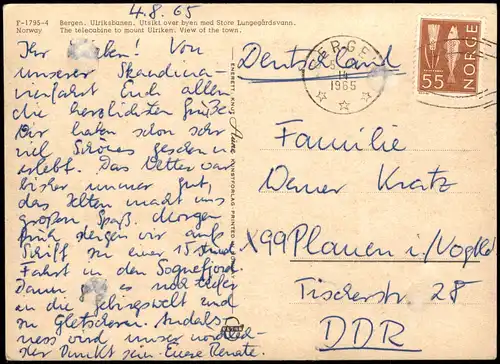 4.8.65
F-1795-4 Bergen. Ulriksbanen. Utsikt over byen med Store Lungegårdsvann.
Norway The telecabine to mount Ulriken. View of the town.
Ihr Lieben! Von
unserer Skandina-
vienfahrt Euch allen
die herzlichsten Grüße.
Wir haben schon sehr
viel Schönes gesehen u.
erlebt. Das Wetter war
bisher immer gut,
das Zelten macht uns
großen Spaß. Morgen
früh steigen wir aufs
Schiff zu einer 15 stünd.
Fahrt in den Sognefjord.
Dann geht es noch tiefer
in die Gebirgswelt und
zu Gletschern. Andals-
ness wird unser nördlich-
ster Punkt sein. Eure Renate.
ENERETT: KNUT Aune KUNSTFORLAG PRINTED
Deutschland
BERGEN
14
1965
NORGE
55
Familie
Werner Kratz
X99 Plauen i/Vogtld
Tischerstr. 28
DDR